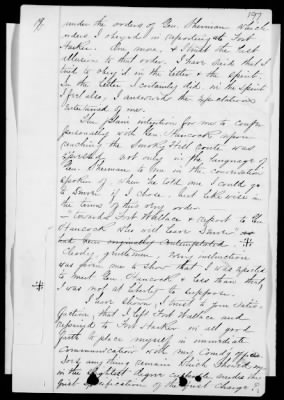 197
17.
under the orders of Gen. Sherman which
orders I obeyed in reporting at Fort
Harker. One more, & I trust the last
allusion to that order. I have said that I
tried to obey it in the letter & the spirit.
In the letter I certainly did. in the spirit
I feel also, I answered the expectations
entertained of me.
The plain intention for me to confer
personally with Gen. Hancock before
reaching the Smoky Hill route was
expressed not only in the language of
Gen. Sherman to me in the conversation
spoken of when he told me I could go
to Denver if I chose. but likewise in
the terms of this very order
— towards Fort Wallace & report to Gen
Hancock who will leave Denver
as had been originally contemplated.
Clearly, gentlemen, every instruction
was given me to show that I was expected
to meet Gen. Hancock & less than that,
I was not at liberty to suppose.
I have shown, I trust to your satis-
faction, that I left Fort Wallace and
reported to Fort Harker in all good
faith to place myself in immediate
communication with my Comdg officer
Does any thing remain which should
in the slightest degree
first specification of the first Charge?